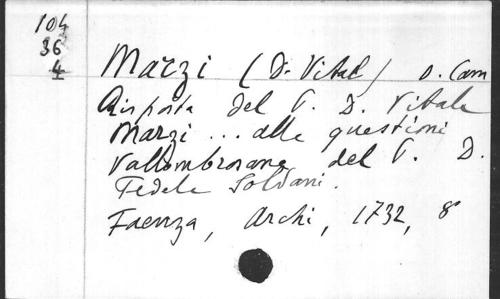 104
36
4
Marzi (D. Vital) O. Cam
Risposta del P. D. Vitale
Marzi ... alle questioni
Vallombrosane del P. D.
Fedele Soldani.
Faenza, Archi, 1732, 8º